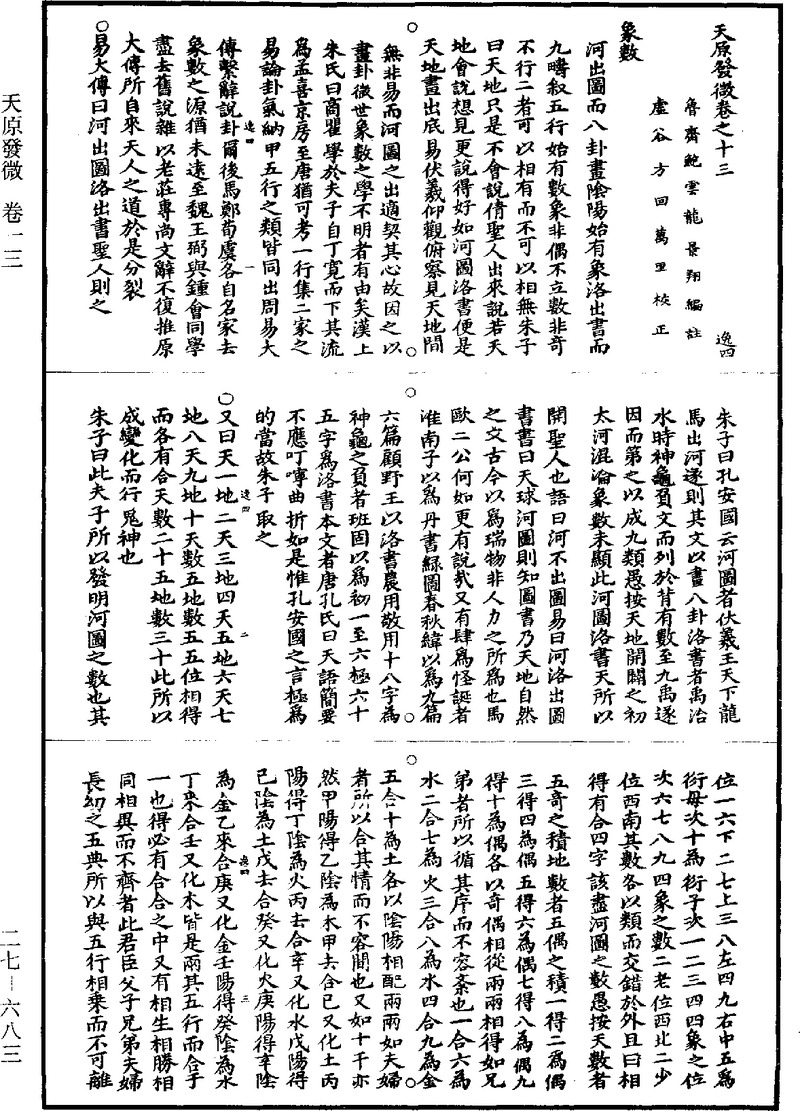 天原發微卷之十三
逸四
魯齋鮑雲龍景翔編註
虛谷方回萬里校正
象數
河出圖而八卦畫陰陽始有象洛出書而
九疇叙五行始有數象非偶不立數非奇
不行二者可以相有而不可以相無朱子
曰天地只是不會說倩聖人出來說若天
地會說想見更說得好如河圖洛書便是
天地畫出底易伏羲仰觀俯察見天地間
無非易而河圖之出適契其心故因之以
畫卦後世象數之學不明者有由矣漢上
朱氏曰商瞿學於夫子自丁寬而下其流
為孟喜京房至唐猶可考一行集二家之
易論卦氣納甲五行之類皆同出周易大
傳繫辭說卦爾後馬鄭荀虞各自名家去
象數之源猶未遠至魏王弼與鍾會同學
盡去舊說雜以老莊專尚文辭不復推原
大傳所自來天人之道於是分裂
○易大傳曰河出圖洛出書聖人則之
朱子曰孔安國云河圖者伏羲王天下龍
馬出河遂則其文以畫八卦洛書者禹治
水時神龜負文而列於背有數至九禹遂
因而第之以成九類愚按天地開闢之初
太河混淪象數未顯此河圖洛書天所以
開聖人也語曰河不出圖易曰河洛出圖
書書曰天球河圖則知圖書乃天地自然
之文古今以為瑞物非人力之所為也馬
歐二公何如更有說哉又有肆為怪誕者
淮南子以為丹書綠圖春秋緯以為九篇
六篇顧野王以洛書農用敬用十八字為
神龜之負者班固以為初一至六極六十
五字為洛書本文者唐孔氏曰天語簡要
不應叮嚀曲折如是惟孔安國之言極為
的當故朱子取之
○又曰天一地二天三地四天五地六天七
地八天九地十天數五地數五五位相得
而各有合天數二十五地數三十此所以
成變化而行鬼神也
朱子曰此夫子所以發明河圖之數也其
位一六下二七上三八左四九右中五為
衍母次十為衍子次一二三四四象之位
次六七八九四象之數二老位西北二少
位西南其數各以類而交錯於外且曰相
得有合四字該盡河圖之數愚按天數者
五奇之積地數者五偶之積一得二為偶
三得四為偶五得六為偶七得八為偶九
得十為偶各以奇偶相從兩兩相得如兄
弟者所以循其序而不容紊也一合六為
水二合七為火三合八為水四合九為金
五合十為土各以陰陽相配兩兩如夫婦
者所以合其情而不容間也又如十干亦
然甲陽得乙陰為木甲去合已又化土丙
陽得丁陰為火丙去合辛又化水戊陽得
已陰為土戊去合癸又化火庚陽得辛陰
為金乙來合庚又化金壬陽得癸陰為水
丁來合壬又化木皆是兩其五行而合于
一也得必有合合之中又有相生相勝相
同相異而不齊者此君臣父子兄弟夫婦
長幼之五典所以與五行相乘而不可離
逸四 一
逸四 二
逸四 三
天原發微 卷一三
二七－六八三